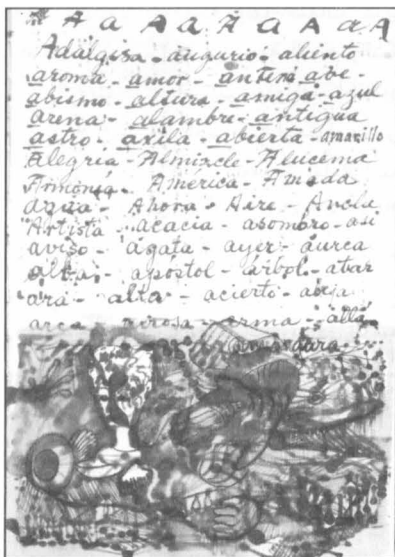 A a A A A A A a A
Adalgisa - augurio - aliento
aroma - amor - antena ave -
abismo - altura - amiga - azul
arena - alambre - antigua
astro - axila - abierta - amarillo
Alegría - Almizcle - Alucema
Armonía - América - Amada
agua - Ahora - Aire - Ancla
Artista - acacia - asombro - así
aviso - ágata - ayer - áurea
alba - apóstol - árbol - atar
ara - alta - acierto - abeja
arca - airosa - arma - allá
amargura